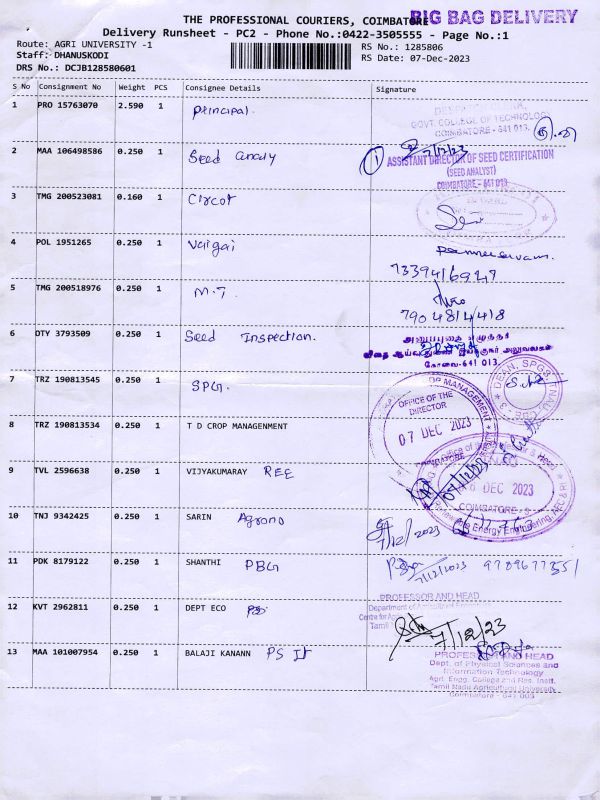 THE PROFESSIONAL COURIERS, COIMBATORE
BIG BAG DELIVERY
Delivery Runsheet - PC2 - Phone No.:0422-3505555 - Page No.:1
Route: AGRI UNIVERSITY -1
Staff: DHANUSKODI
DRS No.: DCJB128580601
RS No.: 1285806
RS Date: 07-Dec-2023
S No Consignment No Weight PCS Consignee Details Signature
1 PRO 15763070 2.590 1 Principal.
GOVT. COLLEGE OF TECHNOLOGY
COIMBATORE - 641 013.
2 MAA 106498586 0.250 1 Seed Analy
1 7/12/23
ASSISTANT DIRECTOR OF SEED CERTIFICATION
(SEED ANALYST)
COIMBATORE - 641 013
3 TMG 200523081 0.160 1 Circot
4 POL 1951265 0.250 1 Vaigai
5 TMG 200518976 0.250 1 M.T.
7904814418
6 DTY 3793509 0.250 1 Seed Inspection.
கோவை-641 013.
7 TRZ 190813545 0.250 1 SPG.
DEAN, SPGS, TNAU, CBE - 3
8 TRZ 190813534 0.250 1 T D CROP MANAGENMENT
OFFICE OF THE
DIRECTOR
07 DEC 2023
9 TVL 2596638 0.250 1 VIJYAKUMARAY REE
DEC 2023
COIMBATORE - 3
10 TNJ 9342425 0.250 1 SARIN Agrono
7/12/2023
11 PDK 8179122 0.250 1 SHANTHI PBG
7/12/2023 9789677351
12 KVT 2962811 0.250 1 DEPT ECO
PROFESSOR AND HEAD
7/12/23
13 MAA 101007954 0.250 1 BALAJI KANANN PS IT
PROFESSOR AND HEAD
Dept. of Physical Sciences and
Information Technology
Agri. Engg. College and Res. Instt.
Tamil Nadu Agricultural University
Coimbatore - 641 003